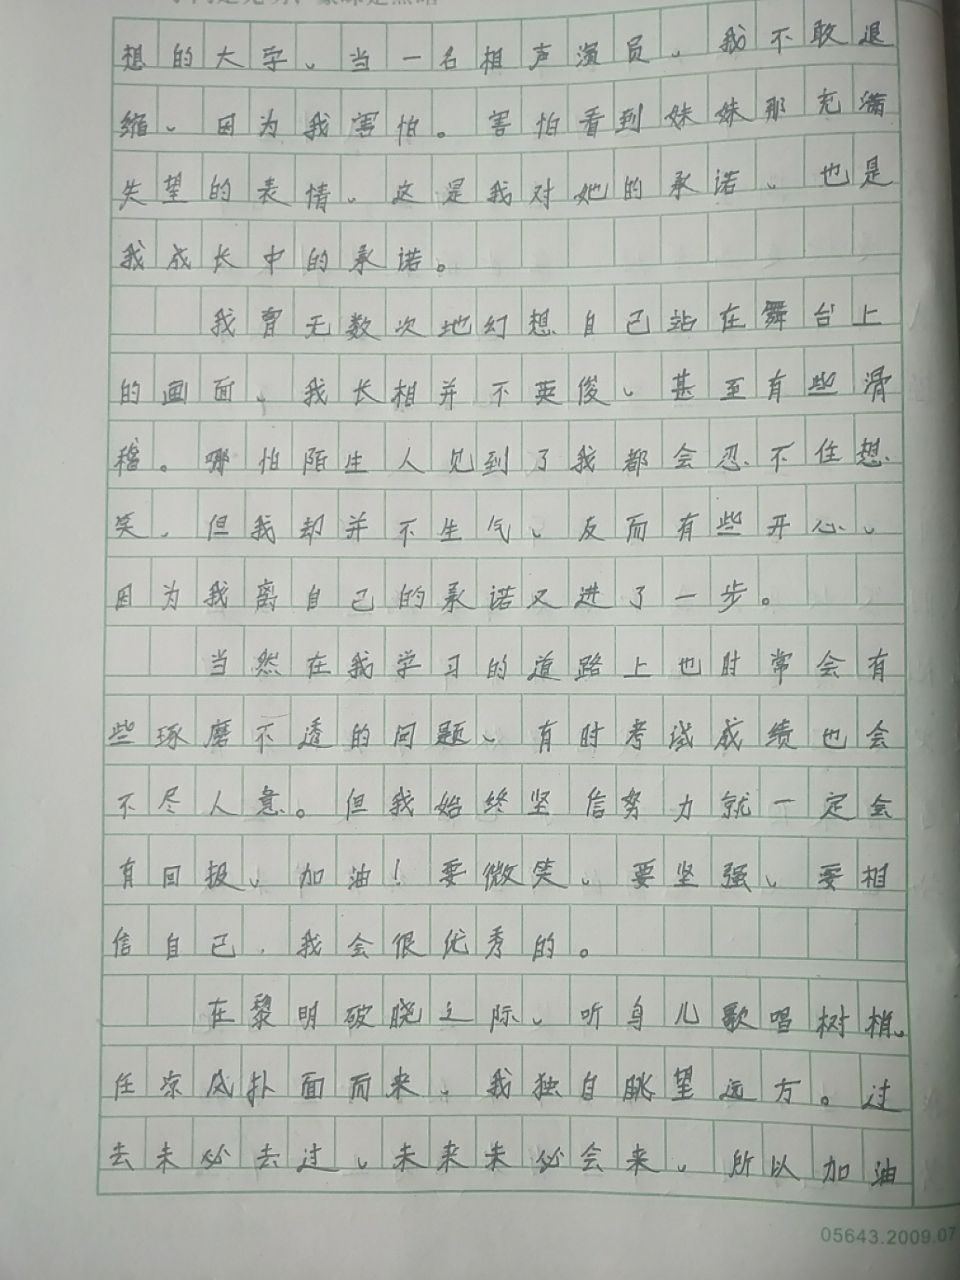 想的大学、当一名相声演员、我不敢退
缩、因为我害怕。害怕看到妹妹那充满
失望的表情、这是我对她的承诺、也是
我成长中的承诺。
我曾无数次地幻想自己站在舞台上
的画面、我长相并不英俊、甚至有些滑
稽。哪怕陌生人见到了我都会忍不住想
笑、但我却并不生气、反而有些开心、
因为我离自己的承诺又进了一步。
当然在我学习的道路上也时常会有
些琢磨不透的问题、有时考试成绩也会
不尽人意。但我始终坚信努力就一定会
有回报、加油!要微笑、要坚强、要相
信自己、我会很优秀的。
在黎明破晓之际、听鸟儿歌唱树梢、
任凉风扑面而来、我独自眺望远方。过
去未必去过、未来未必会来、所以加油
05643.2009.07